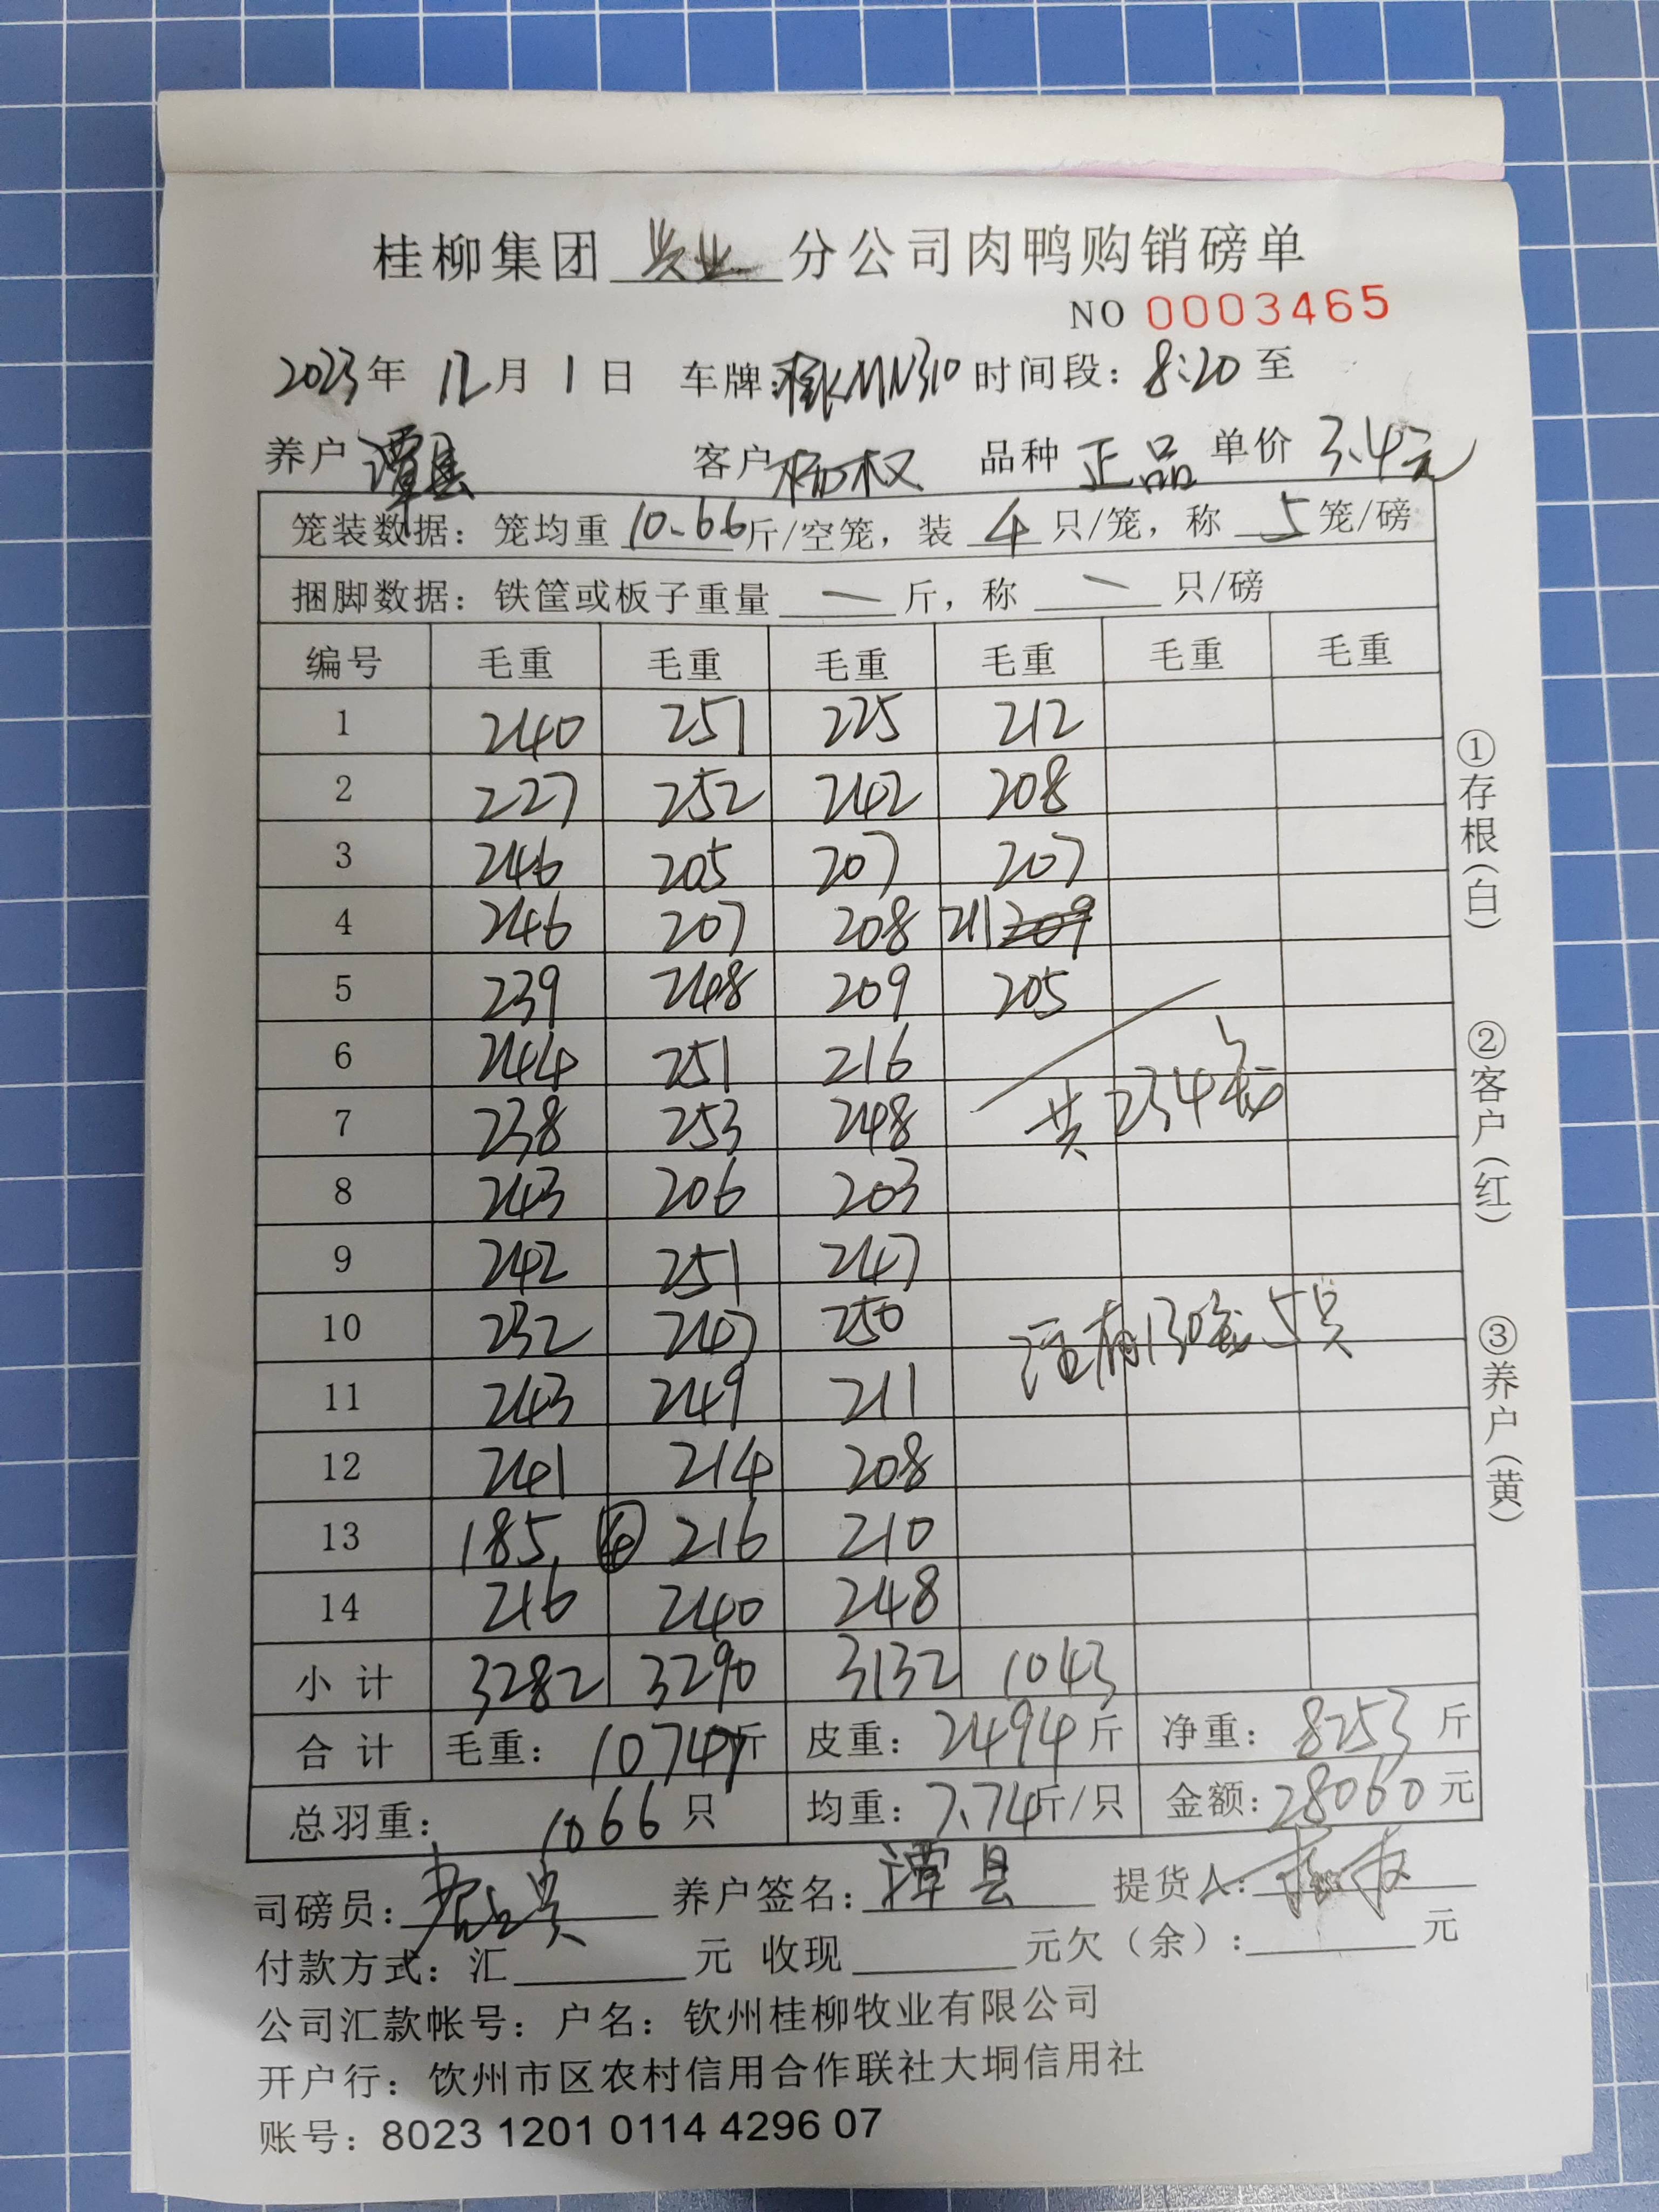 桂柳集团 兴业 分公司肉鸭购销磅单
NO 0003465
2023年 12月 1日 车牌:桂KMN310 时间段:8:20至
养户 谭县 客户 杨权 品种 正品 单价 3.4元
笼装数据:笼均重 10.66 斤/空笼,装 4 只/笼,称 5 笼/磅
捆脚数据:铁筐或板子重量 — 斤,称 — 只/磅
编号 毛重 毛重 毛重 毛重 毛重 毛重
1 240 251 225 212
2 227 252 242 208
3 246 205 207 207
4 246 207 208 211 209
5 239 248 209 205
6 244 251 216
7 238 253 248 共234笼
8 243 206 203
9 242 251 247
10 232 247 250 注有130笼5只
11 243 249 211
12 241 214 208
13 185 ④ 216 210
14 216 240 248
小计 3282 3290 3132 1043
合计 毛重:10747斤 皮重:2494斤 净重:8253斤
总羽重:1066只 均重:7.74斤/只 金额:28060元
司磅员: 养户签名:谭县 提货人:
付款方式:汇 元 收现 元欠(余): 元
公司汇款帐号:户名:钦州桂柳牧业有限公司
开户行:饮州市区农村信用合作联社大垌信用社
账号:8023 1201 0114 4296 07
①存根(白)
②客户(红)
③养户(黄)